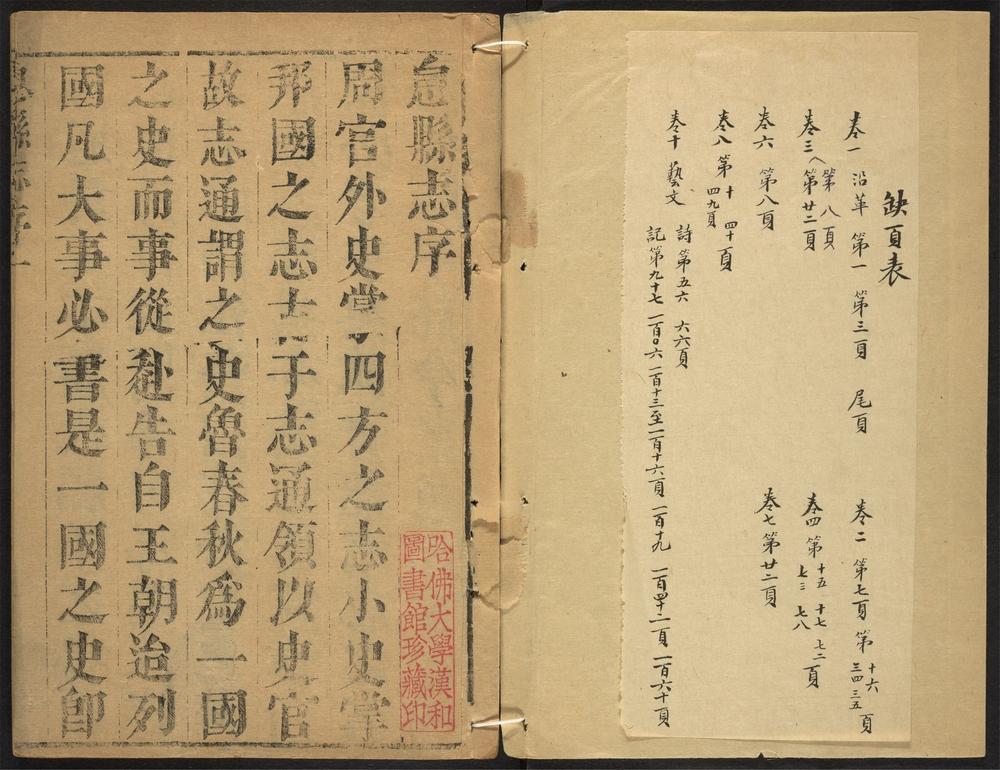 缺頁表
卷一 沿革 第一 第三頁 尾頁
卷二 第七頁 第十六 三四 三五 頁
卷三 第八頁 第廿二頁
卷四 第十五 十七 七二 七三 七八 頁
卷六 第八頁
卷七 第廿二頁
卷八 第十 四十頁 四九頁
卷十 藝文 詩第五六 六六頁
記第九十七 一百〇六 一百十三至一百十六頁 一百十九 一百四十二頁 一百六十頁
息縣志序
周官外史掌四方之志小史掌
邦國之志 子志通領以史官
故志通謂之史魯春秋爲一國
之史而事從赴告自王朝迨列
國凡大事必書是一國之史卽
息縣志序 一
哈佛大學漢和
圖書館珍藏印